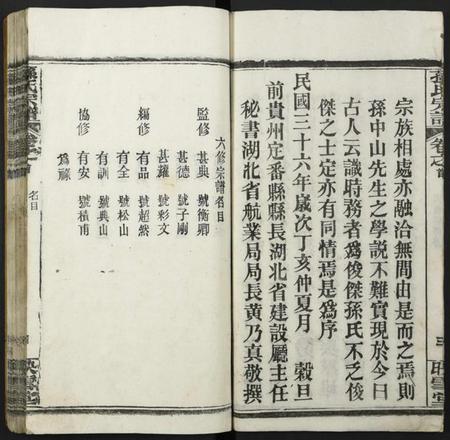 宗族相處亦融洽無間由是而之焉則
孫中山先生之學說不難實現於今日
古人云識時務者為俊傑孫氏不乏俊
傑之士定亦有同情焉是為序
民國三十六年歲次丁亥仲夏月 穀旦
前貴州定番縣縣長湖北省建設廳主任
秘書湖北省航業局局長黃乃真敬撰
孫氏宗譜 卷之首
三 映雪堂
六修宗譜名目
監修 甚典 號衡卿
甚德 號子剛
甚躍 號彩文
編修 有品 號超然
有全 號松山
有訓 號典山
協修 有安 號積甫
為藤
孫氏宗譜 卷之首 名目
映雪堂